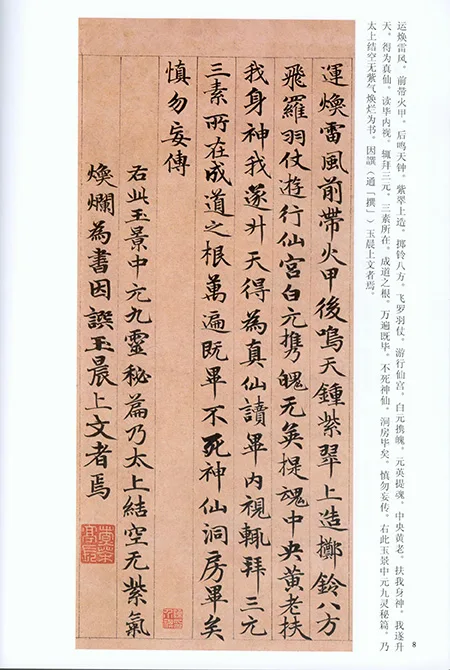 运焕雷风，前带火甲，后鸣天钟，紫翠上造，掷铃八方，飞罗羽仗，游行仙宫，白元携魄，元英提魂，中央黄老，扶我身神，我遂升
天，得为真仙，读毕内视，辄拜三元，三素所在，成道之根，万遍既毕，不死神仙，洞房毕矣，慎勿妄传。右此玉景中元九灵秘篇，乃
太上结空无紫气焕烂为书，因譔（通「撰」）玉晨上文者焉。
運煥雷風前帶火甲後鳴天鍾紫翠上造擲鈴八方
飛羅羽仗遊行仙宮白元携魄无英提魂中央黃老扶
我身神我遂升天得為真仙讀畢內視輒拜三元
三素所在成道之根萬遍既畢不死神仙洞房畢矣
慎勿妄傳
右此玉景中元九靈秘篇乃太上結空无紫氣
煥爛為書因譔玉晨上文者焉
8